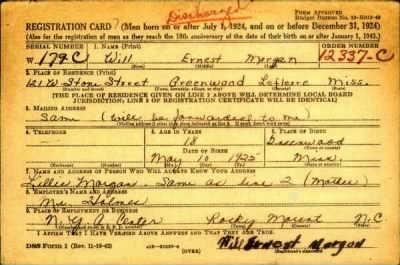 Discharged
FORM APPROVED
BUDGET BUREAU NO. 33-R013-42
REGISTRATION CARD (Men born on or after July 1, 1924, and on or before December 31, 1924)
(Also for the registration of men as they reach the 18th anniversary of the date of their birth on or after January 1, 1943.)
SERIAL NUMBER 1. NAME (Print) ORDER NUMBER
W 179-C Will Ernest Morgan 12337-C
(First) (Middle) (Last)
2. PLACE OF RESIDENCE (Print)
121 W Stone Street Greenwood Leflore Miss.
(Number and street) (Town, township, village, or city) (County) (State)
[THE PLACE OF RESIDENCE GIVEN ON LINE 2 ABOVE WILL DETERMINE LOCAL BOARD
JURISDICTION; LINE 2 OF REGISTRATION CERTIFICATE WILL BE IDENTICAL]
3. MAILING ADDRESS
Same (will be forwarded to me)
4. TELEPHONE 5. AGE IN YEARS 6. PLACE OF BIRTH
18 Greenwood
DATE OF BIRTH (Town or county)
May 10 1925 Miss.
(Exchange) (Number) (Mo.) (Day) (Yr.) (State or country)
7. NAME AND ADDRESS OF PERSON WHO WILL ALWAYS KNOW YOUR ADDRESS
Lillie Morgan Same as line 2 (Mother)
8. EMPLOYER'S NAME AND ADDRESS
Mr. Holmes
9. PLACE OF EMPLOYMENT OR BUSINESS
N. Y. A. Center Rocky Mount N.C
(Number and street or R. F. D. number) (Town) (County) (State)
I AFFIRM THAT I HAVE VERIFIED ABOVE ANSWERS AND THAT THEY ARE TRUE.
DSS Form 1 (Rev. 11-16-42) (OVER) Will Ernest Morgan